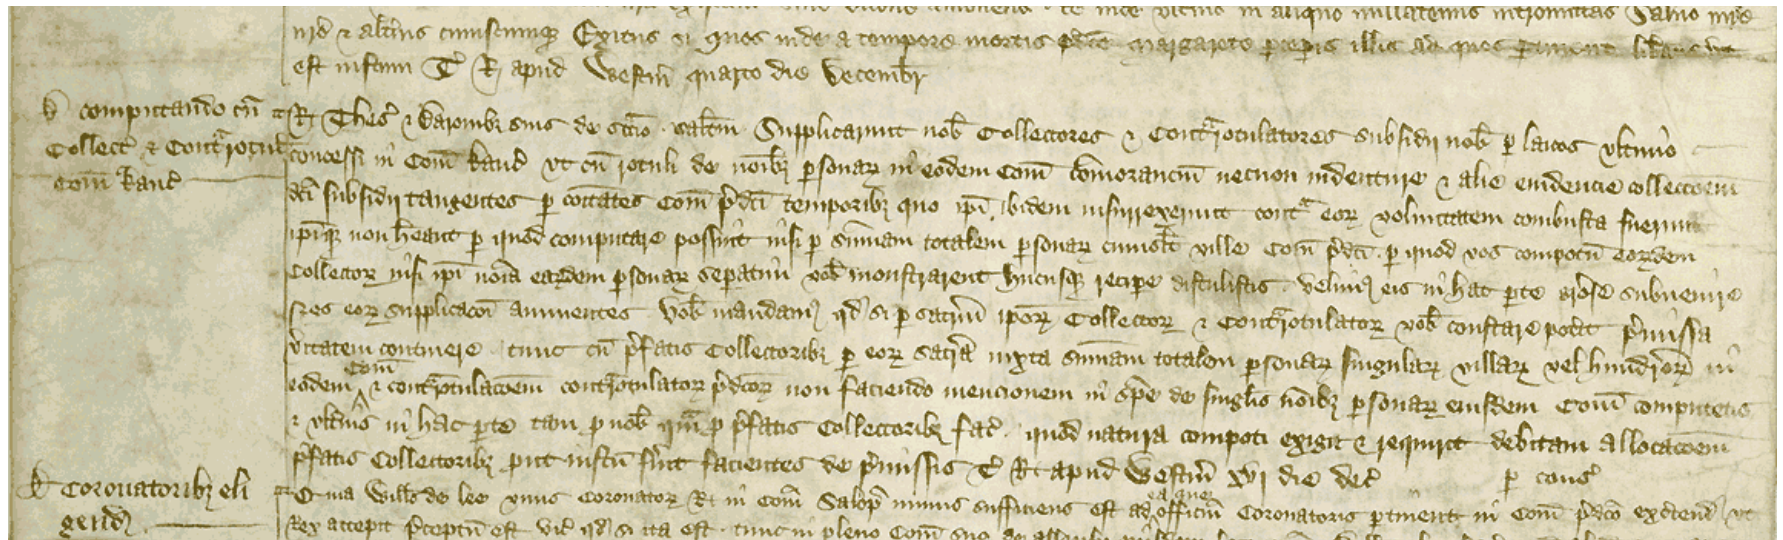 nrd & alterius cuiuscumque Exitus si quos inde a tempore mortis pdce Margarete perceperis illis ad quos pertinent
est iustum T R apud Westm quarto die Decembr
D computando cu
Collect & Contrarotul
Com Kanc
R Thes & Baronibz suis de sccio saltm Supplicarunt nob Collectores & Contrarotulatores subsidii nob p laicos ultimo
concessi in Com Kanc ut cu rotuli de noibz psonar in eodem Com comorancium necnon indenture & alie evidencie collectoem
dci subsidii tangentes p coitates Com pdci temporibz quo ipi ibidem insurrexerunt contra eor voluntatem combusta fuerunt
ipique non heant p quod computare possint nisi p summam totalem psonar cuiuslt ville Com pdci p quod vos compotu eordem
Collector nisi ipi noia eardem psonar sepatim vob monstrarent hucusq recipe distulistis velimus eis in hac pte subvenire
eor supplicacoi annuentes vob mandam qd si p sacrm ipor Collector & Contrarotulator vob constare potit pmissa
vitatem continere tunc cu pfatis Collectoribz p eor sacra iuxta summam totalem psonar singular villar vel hundredor in
eodem Com & contrarotulacoem contrarotulator pdcor non faciendo mencionem in spe de singlis noibz psonar eiusdem Com computetis
& ultius in hac pte tam p nob qm p pfatis Collectoribz fac quod natura compoti exigit & requirit debitam allocacoem
pfatis Collectoribz put iustu fuit facientes de pmissis T R apud Westm xvi die Dec p cons
D Coronatoribz eli
gend
Quia Wills de Lee unus Coronator R in Com Salop minus sufficiens est ad ea que officiu Coronatoris ptinent in Com pdco exercend ut
Rex accepit pceptu est vic qd si ita est tunc in pleno Com suo